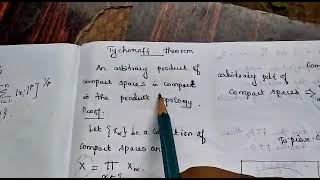 Tychonoff theorem
An arbitrary product of
compact spaces is compact
in the product topology.
Proof:
Let {Xα} is a collection of
compact spaces and
X = Π Xα.
α∈
|xi|p] 1/p
i=1
arbitrary pdt of
compact spaces →
To prove